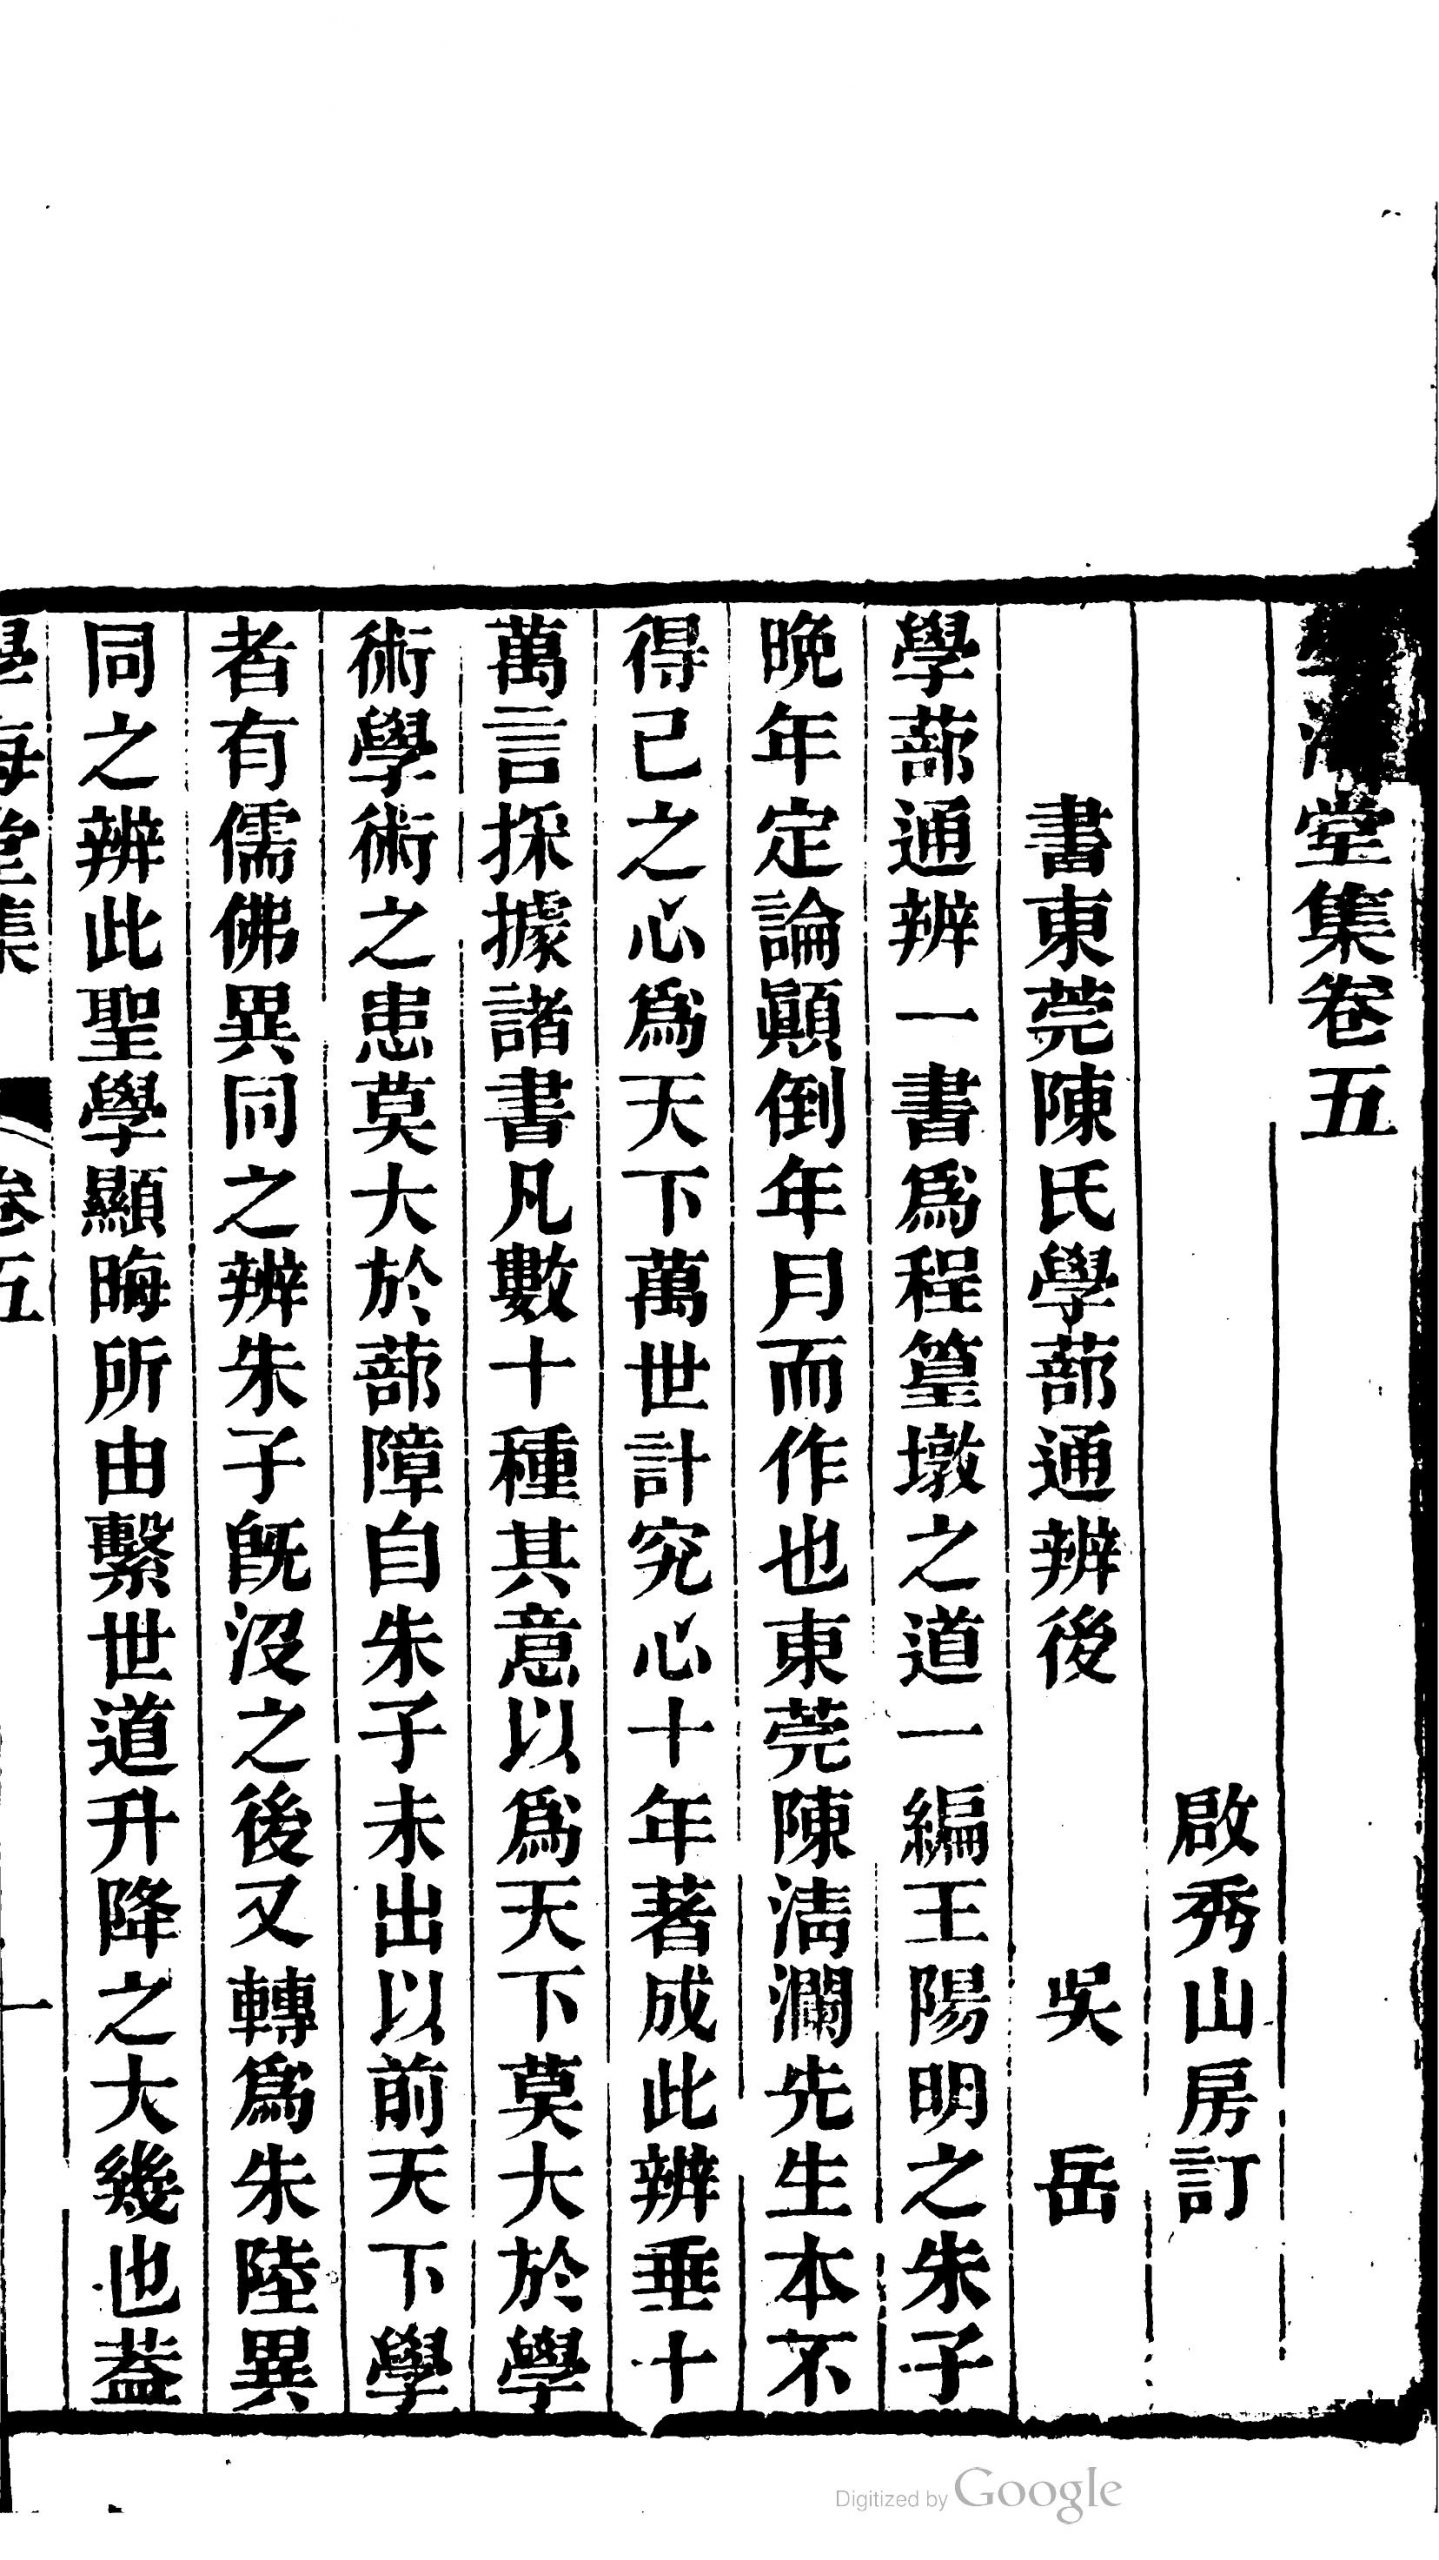 學海堂集卷五
啟秀山房訂
書東莞陳氏學蔀通辨後 吳岳
學蔀通辨一書爲程篁墩之道一編王陽明之朱子
晚年定論顚倒年月而作也東莞陳淸瀾先生本不
得已之心爲天下萬世計究心十年著成此辨垂十
萬言採據諸書凡數十種其意以爲天下莫大於學
術學術之患莫大於蔀障自朱子未出以前天下學
者有儒佛異同之辨朱子旣沒之後又轉爲朱陸異
同之辨此聖學顯晦所由繫世道升降之大幾也蓋
學海堂集 卷五 一
Digitized by Google